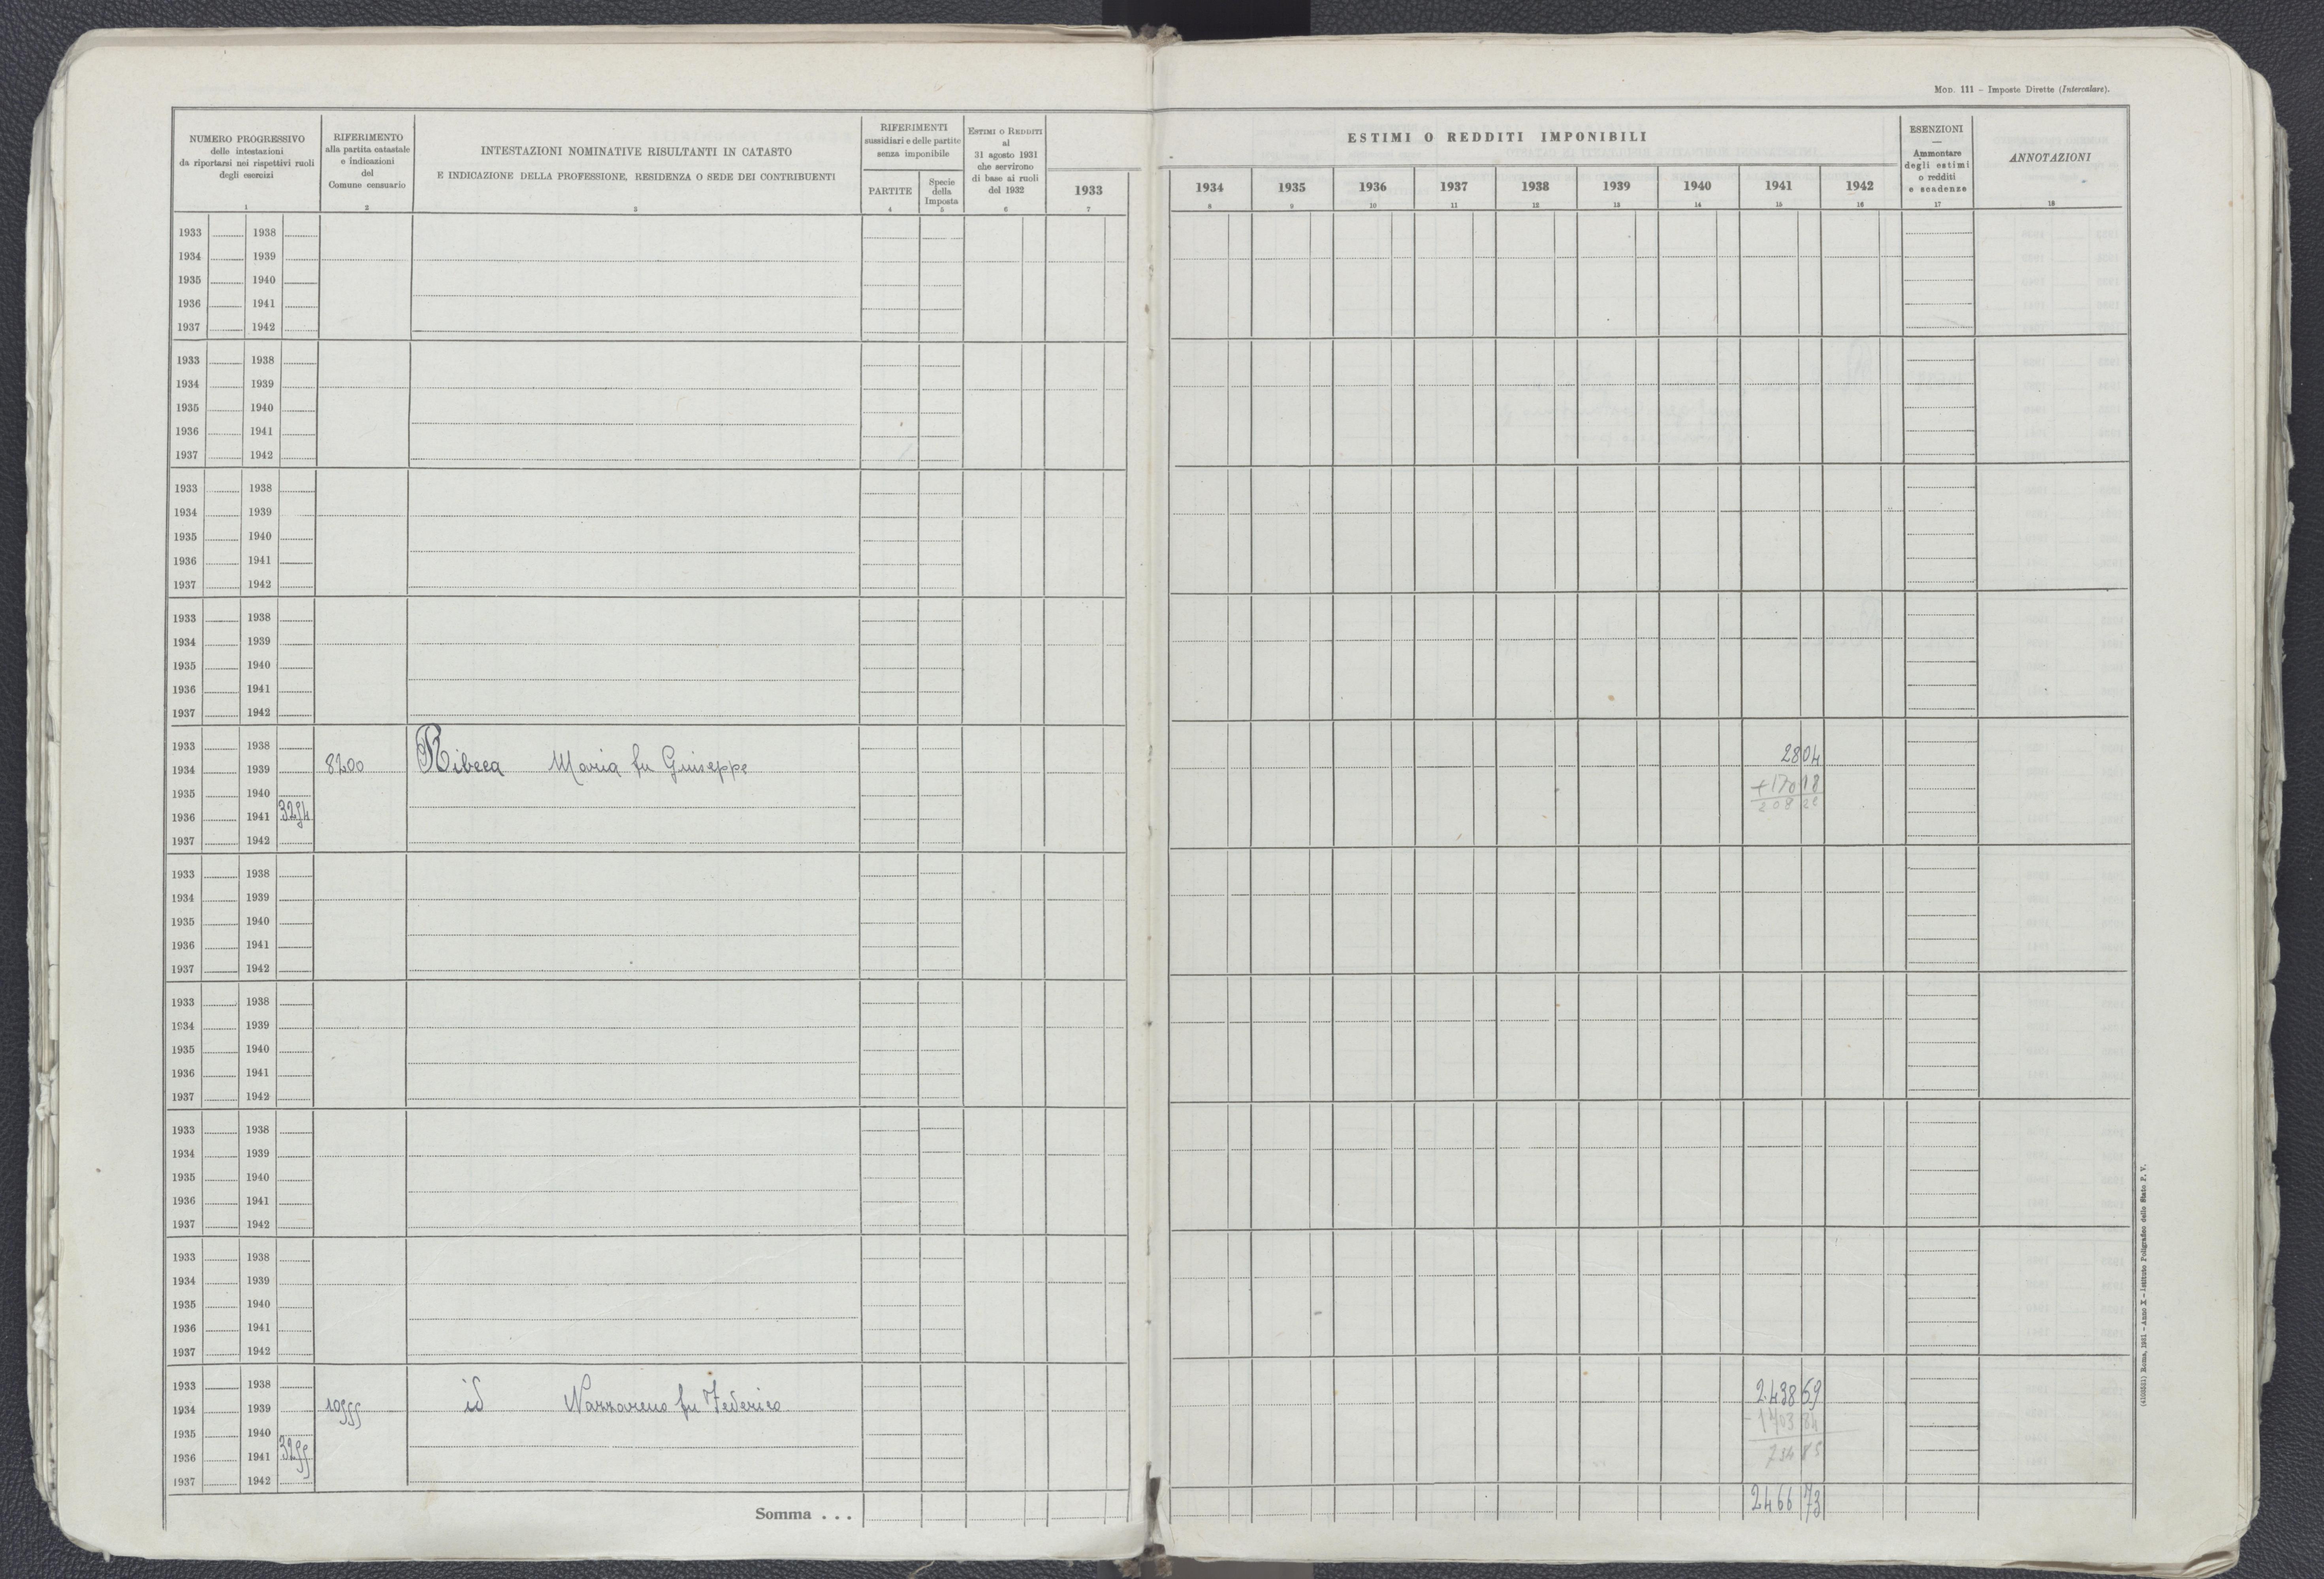 MOD. 111 – Imposte Dirette (Intercalare).
NUMERO PROGRESSIVO
delle intestazioni
da riportarsi nei rispettivi ruoli
degli esercizi
1
RIFERIMENTO
alla partita catastale
e indicazioni
del
Comune censuario
2
INTESTAZIONI NOMINATIVE RISULTANTI IN CATASTO
E INDICAZIONE DELLA PROFESSIONE, RESIDENZA O SEDE DEI CONTRIBUENTI
3
RIFERIMENTI
sussidiari e delle partite
senza imponibile
PARTITE
4
Specie
della
Imposta
5
ESTIMI O REDDITI
al
31 agosto 1931
che servirono
di base ai ruoli
del 1932
6
1933
7
ESTIMI O REDDITI IMPONIBILI
1934 1935 1936 1937 1938 1939 1940 1941 1942
8 9 10 11 12 13 14 15 16
ESENZIONI
—
Ammontare
degli estimi
o redditi
e scadenze
17
ANNOTAZIONI
18
1933 1938
1934 1939
1935 1940
1936 1941
1937 1942
1933 1938
1934 1939
1935 1940
1936 1941
1937 1942
1933 1938
1934 1939
1935 1940
1936 1941
1937 1942
1933 1938
1934 1939
1935 1940
1936 1941
1937 1942
1933 1938 28 04
1934 1939 8200 Ribeca Maria fu Giuseppe
1935 1940 +170 18
1936 1941 3254 208 22
1937 1942
1933 1938
1934 1939
1935 1940
1936 1941
1937 1942
1933 1938
1934 1939
1935 1940
1936 1941
1937 1942
1933 1938
1934 1939
1935 1940
1936 1941
1937 1942
1933 1938
1934 1939
1935 1940
1936 1941
1937 1942
1933 1938 2438 69
1934 1939 10555 id Nazzareno fu Federico
1935 1940 - 1703 84
1936 1941 3255 734 85
1937 1942
Somma . . . 2466 73
(4100551) Roma, 1931 – Anno X – Istituto Poligrafico dello Stato P. V.